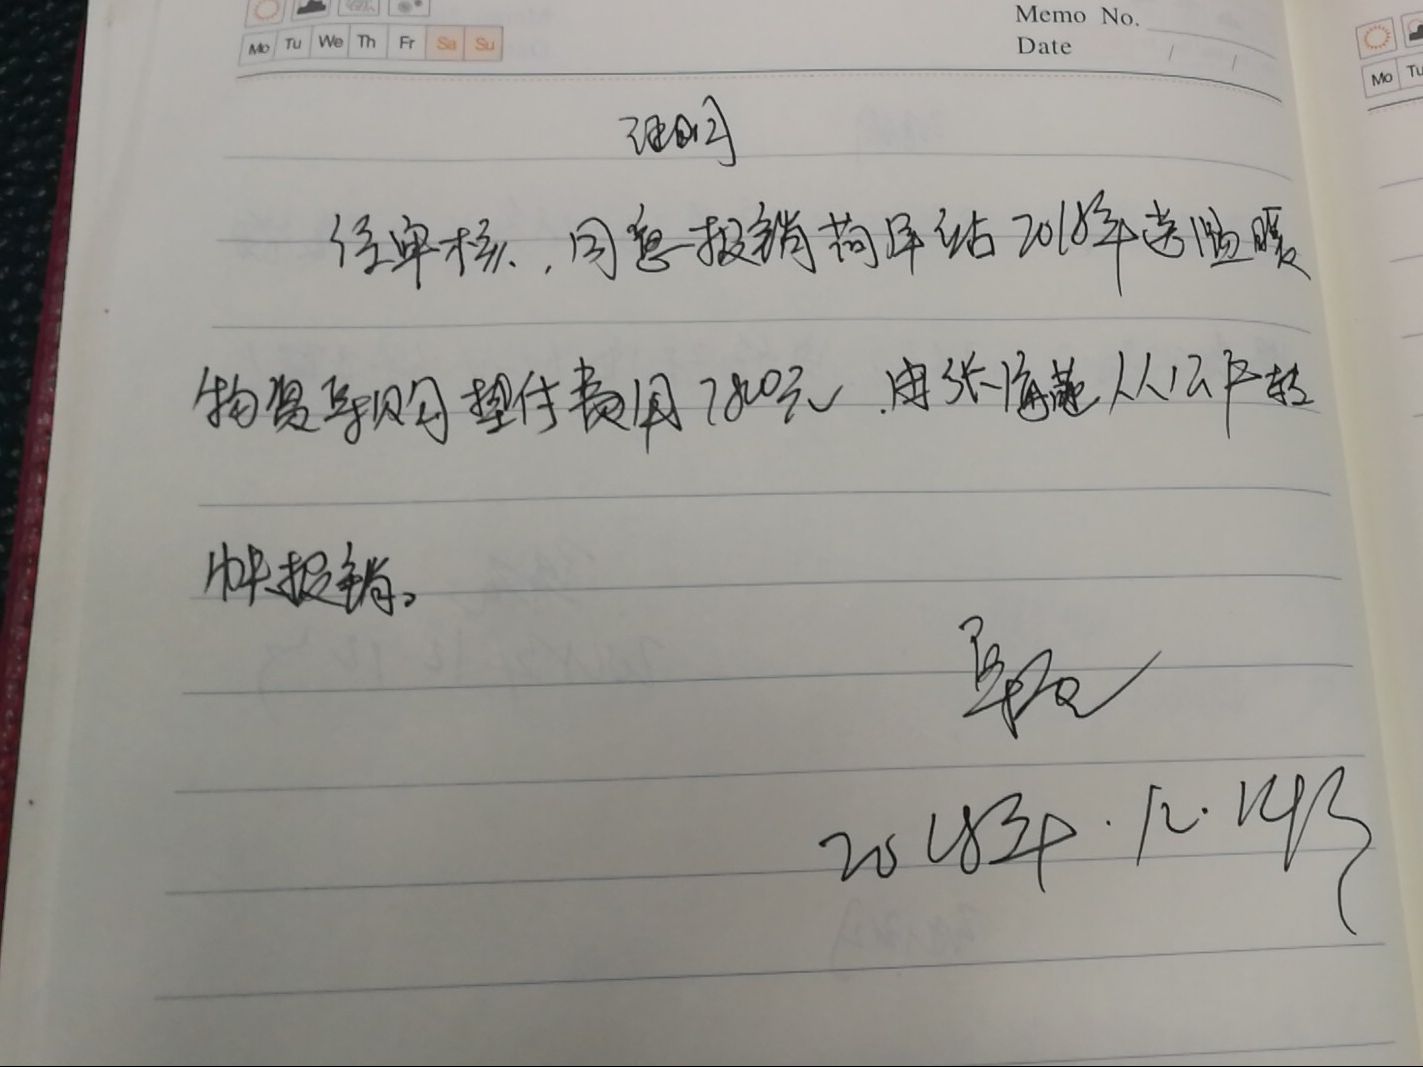 Mo Tu We Th Fr Sa Su
Memo No.
Date / /
Mo Tu
证明
经审核,同意报销荷泽站2018年送温暖
物资采购垫付费用7800元,由张海莲从公户转
帐报销。
2018年.12.12号